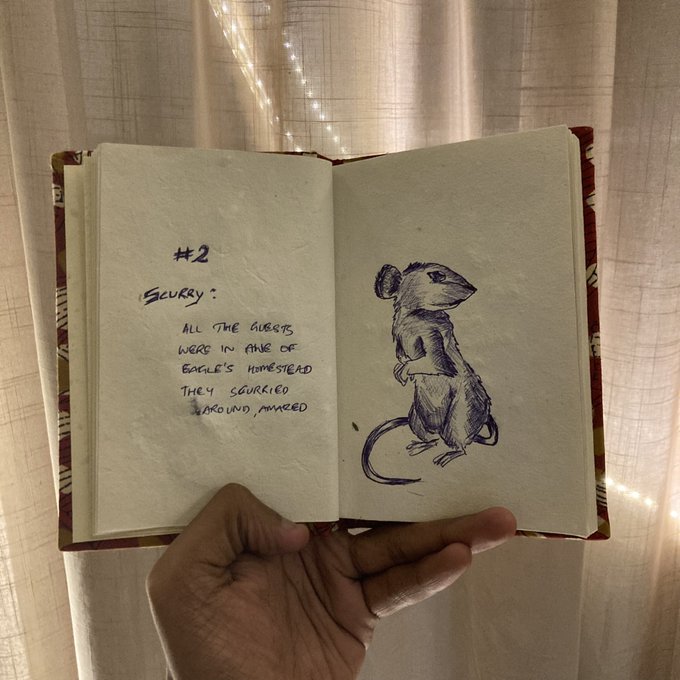 #2
SCURRY:
ALL THE GUESTS
WERE IN AWE OF
EAGLE'S HOMESTEAD
THEY SCURRIED
AROUND, AMAZED